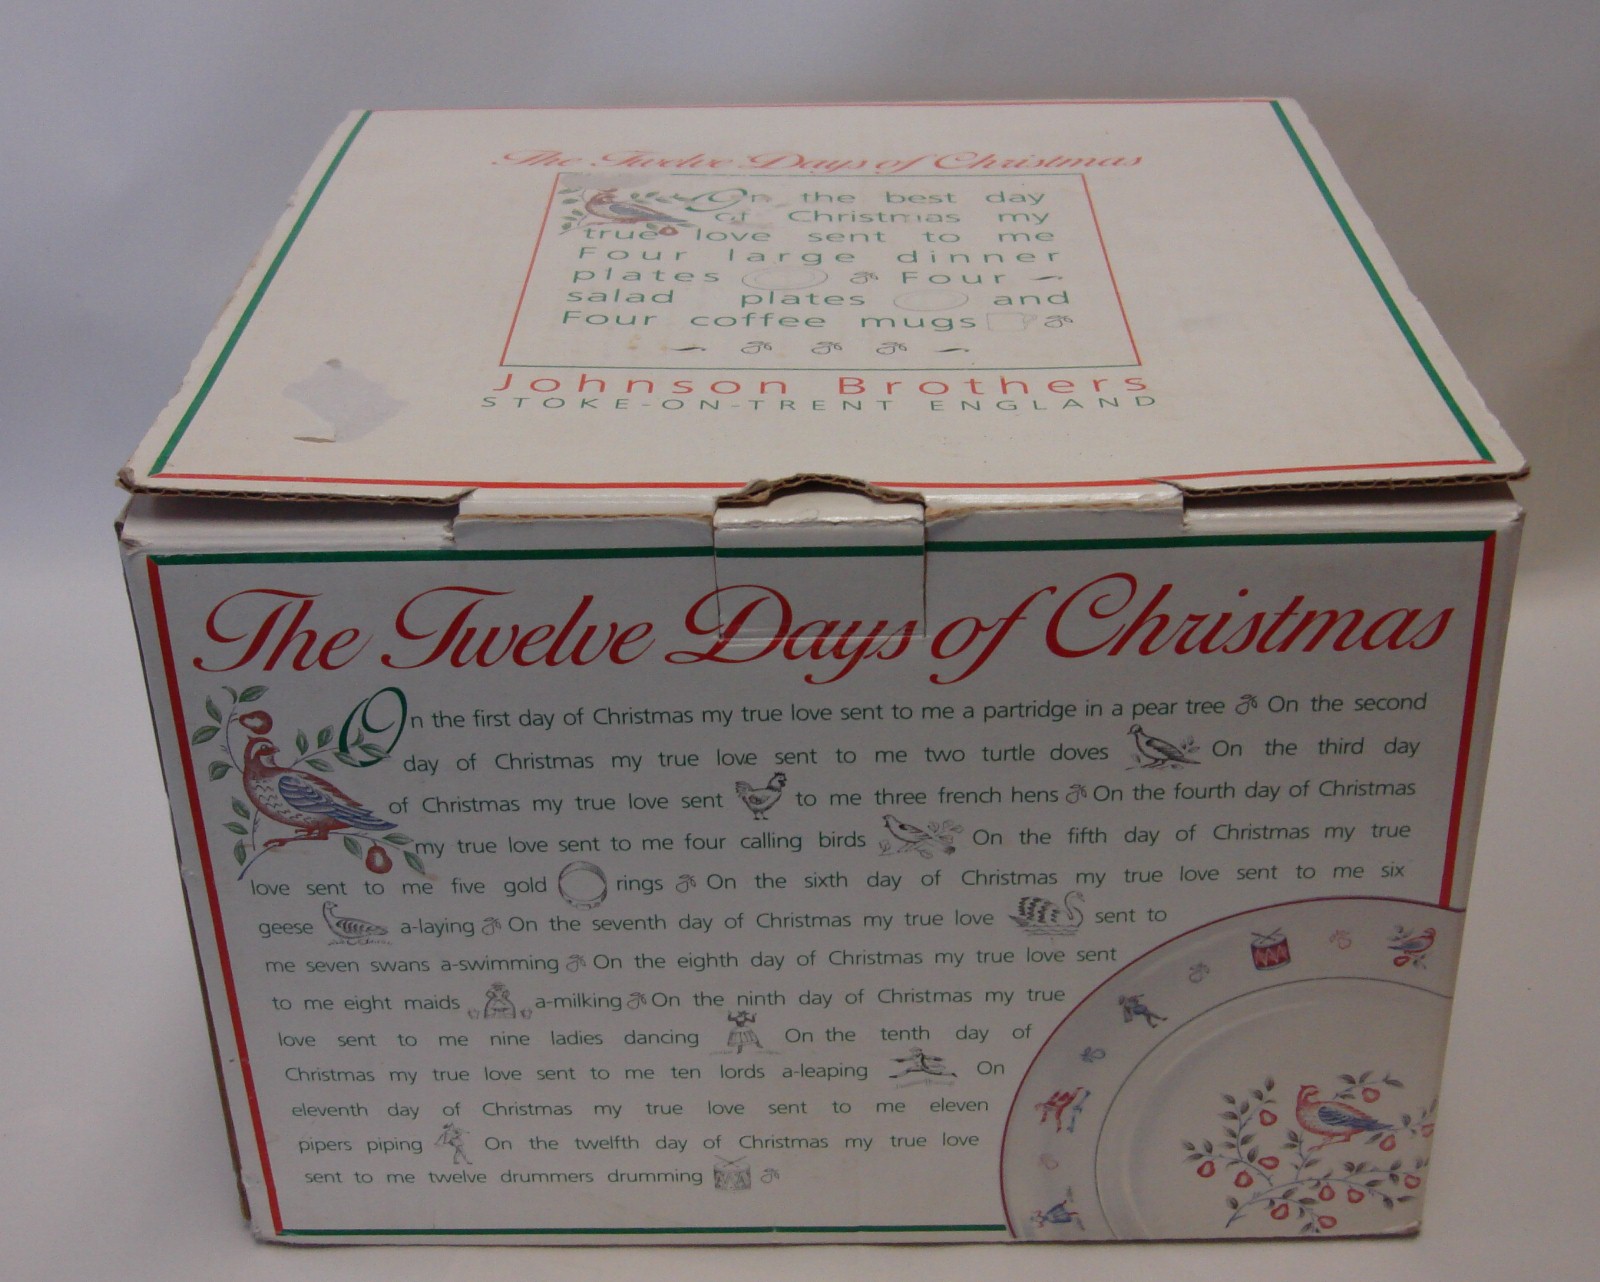 The Twelve Days of Christmas
On the best day
of Christmas my
true love sent to me
Four large dinner
plates Four
salad plates and
Four coffee mugs
Johnson Brothers
STOKE-ON-TRENT ENGLAND
The Twelve Days of Christmas
On the first day of Christmas my true love sent to me a partridge in a pear tree On the second
day of Christmas my true love sent to me two turtle doves On the third day
of Christmas my true love sent to me three french hens On the fourth day of Christmas
my true love sent to me four calling birds On the fifth day of Christmas my true
love sent to me five gold rings On the sixth day of Christmas my true love sent to me six
geese a-laying On the seventh day of Christmas my true love sent to
me seven swans a-swimming On the eighth day of Christmas my true love sent
to me eight maids a-milking On the ninth day of Christmas my true
love sent to me nine ladies dancing On the tenth day of
Christmas my true love sent to me ten lords a-leaping On
eleventh day of Christmas my true love sent to me eleven
pipers piping On the twelfth day of Christmas my true love
sent to me twelve drummers drumming